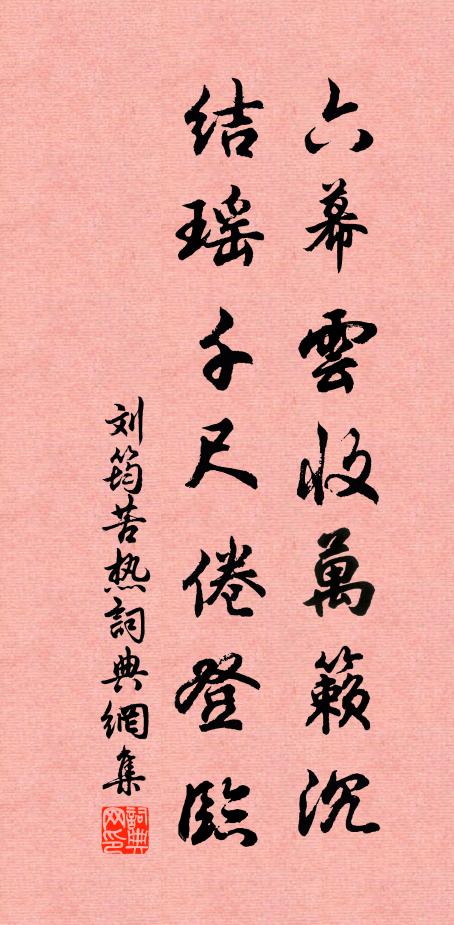 六幕雲收萬籟沉
結瑶千尺倦登臨
刘筠苦热詞典網集
詞典
网印